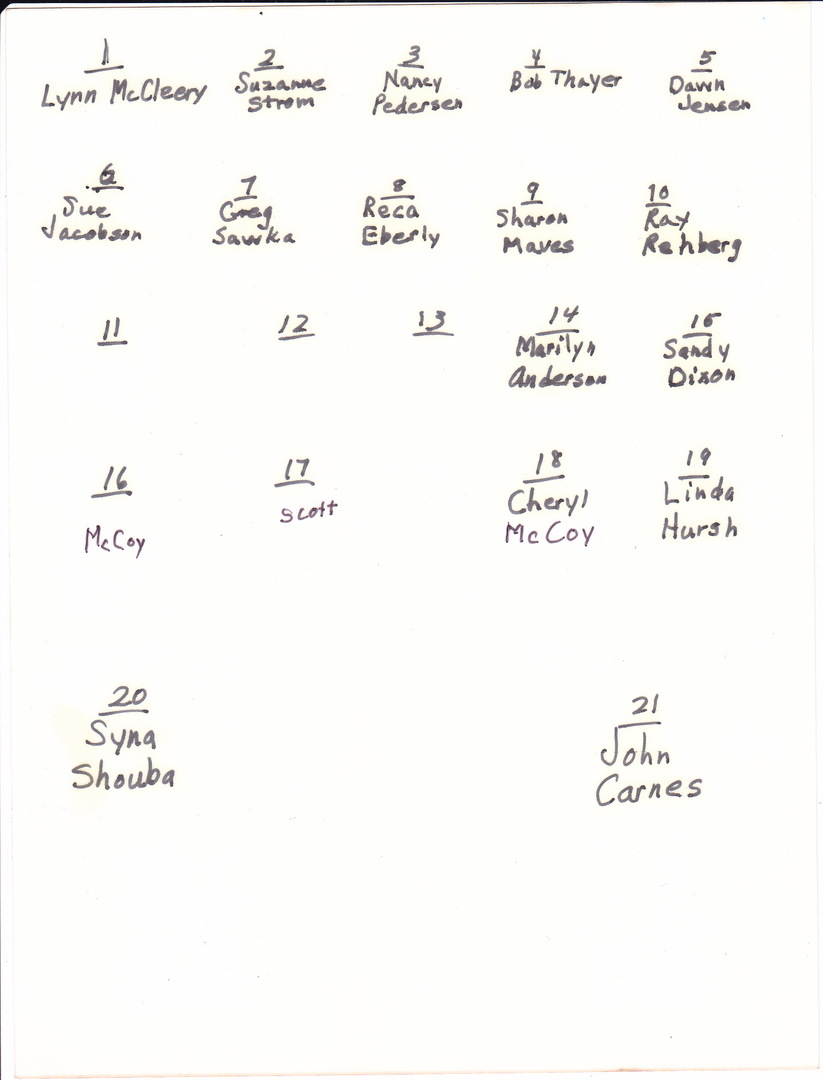 1 2 3 4 5
Lynn McCleery Suzanne Nancy Bob Thayer Dawn
Strom Pedersen Jensen
6 7 8 9 10
Sue Greg Reca Sharon Ray
Jacobson Sawka Eberly Maves Rehberg
11 12 13 14 15
Marilyn Sandy
Anderson Dixon
16 17 18 19
McCoy Scott Cheryl Linda
McCoy Hursh
20 21
Syna John
Shouba Carnes